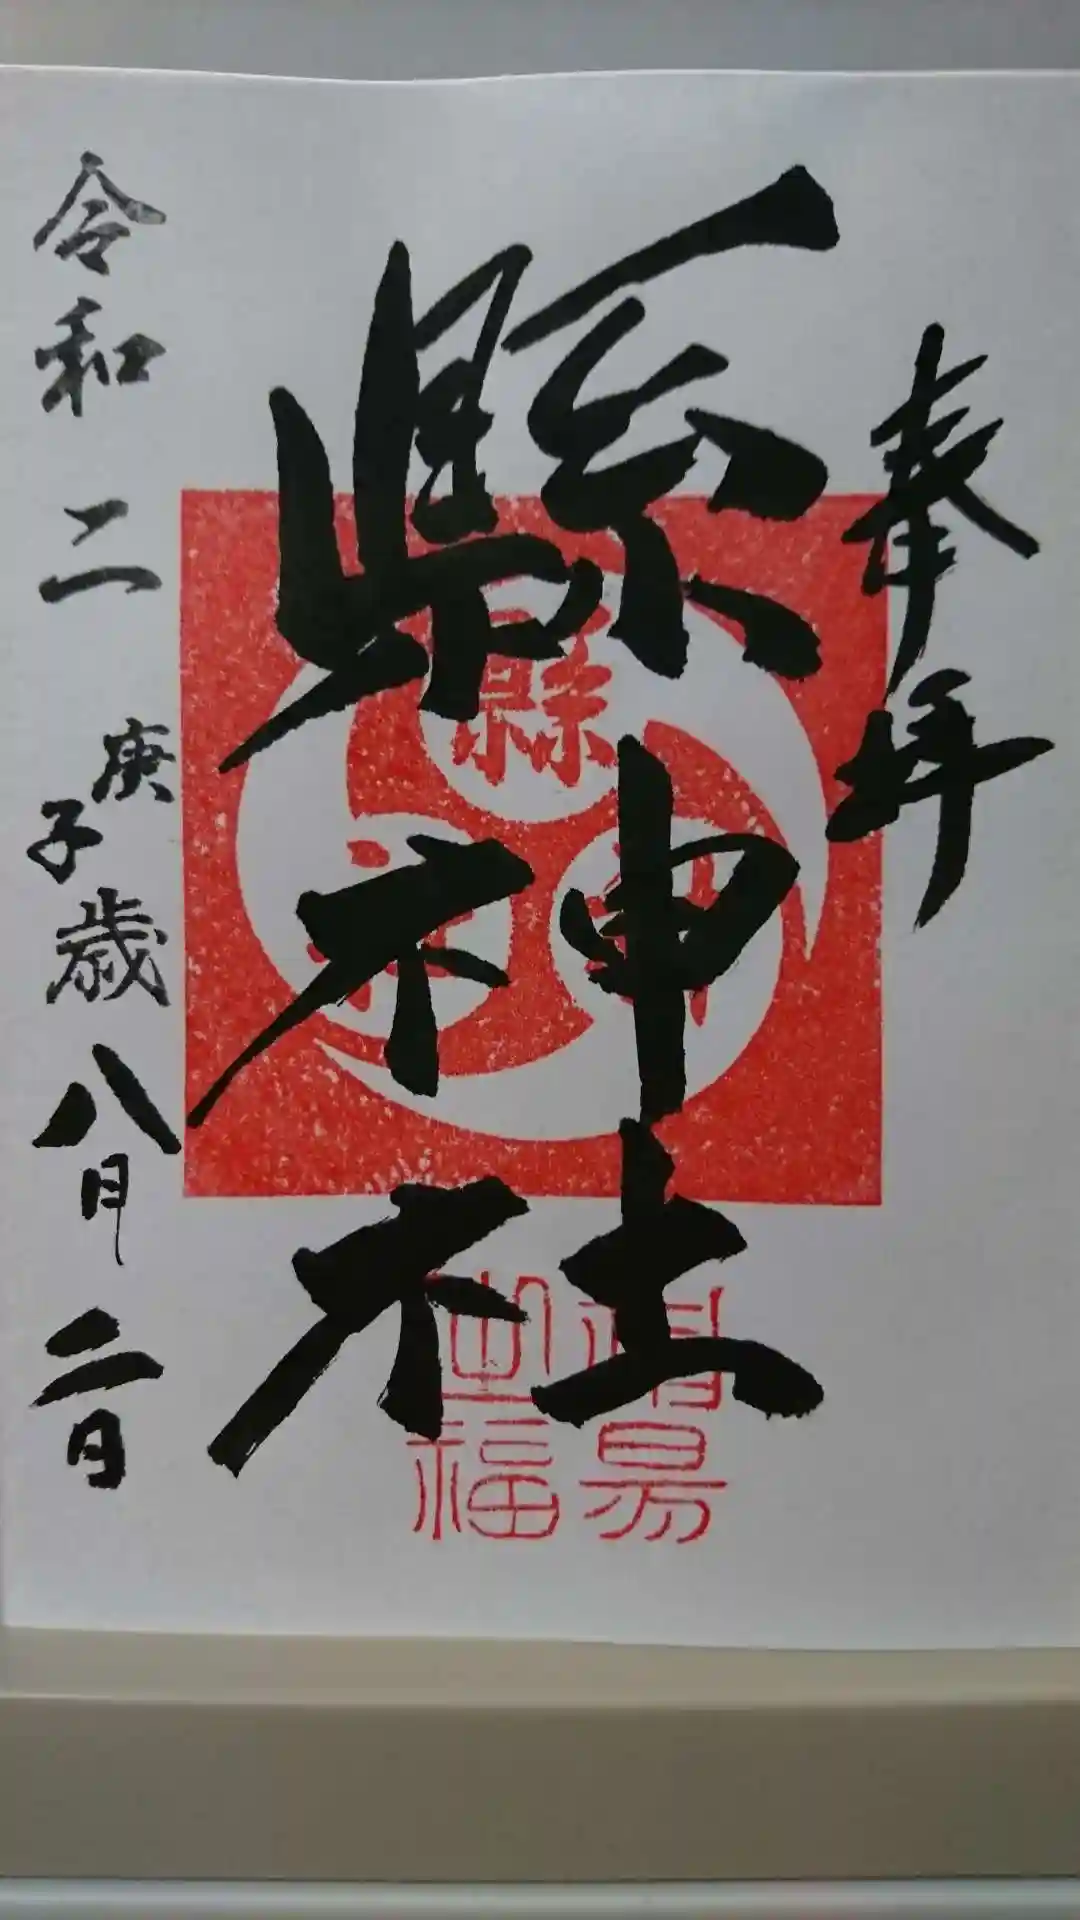 奉拝
縣神社
令和二庚子歳八月二日
縣
神
社